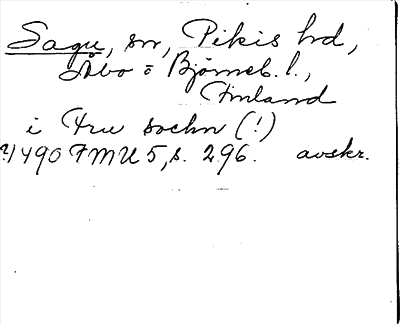 Sagu, sn, Pikis hd,
Åbo o Björneb. l.,
Finland
i Fru sochn (!)
1490 FMU 5, s. 296. avskr.